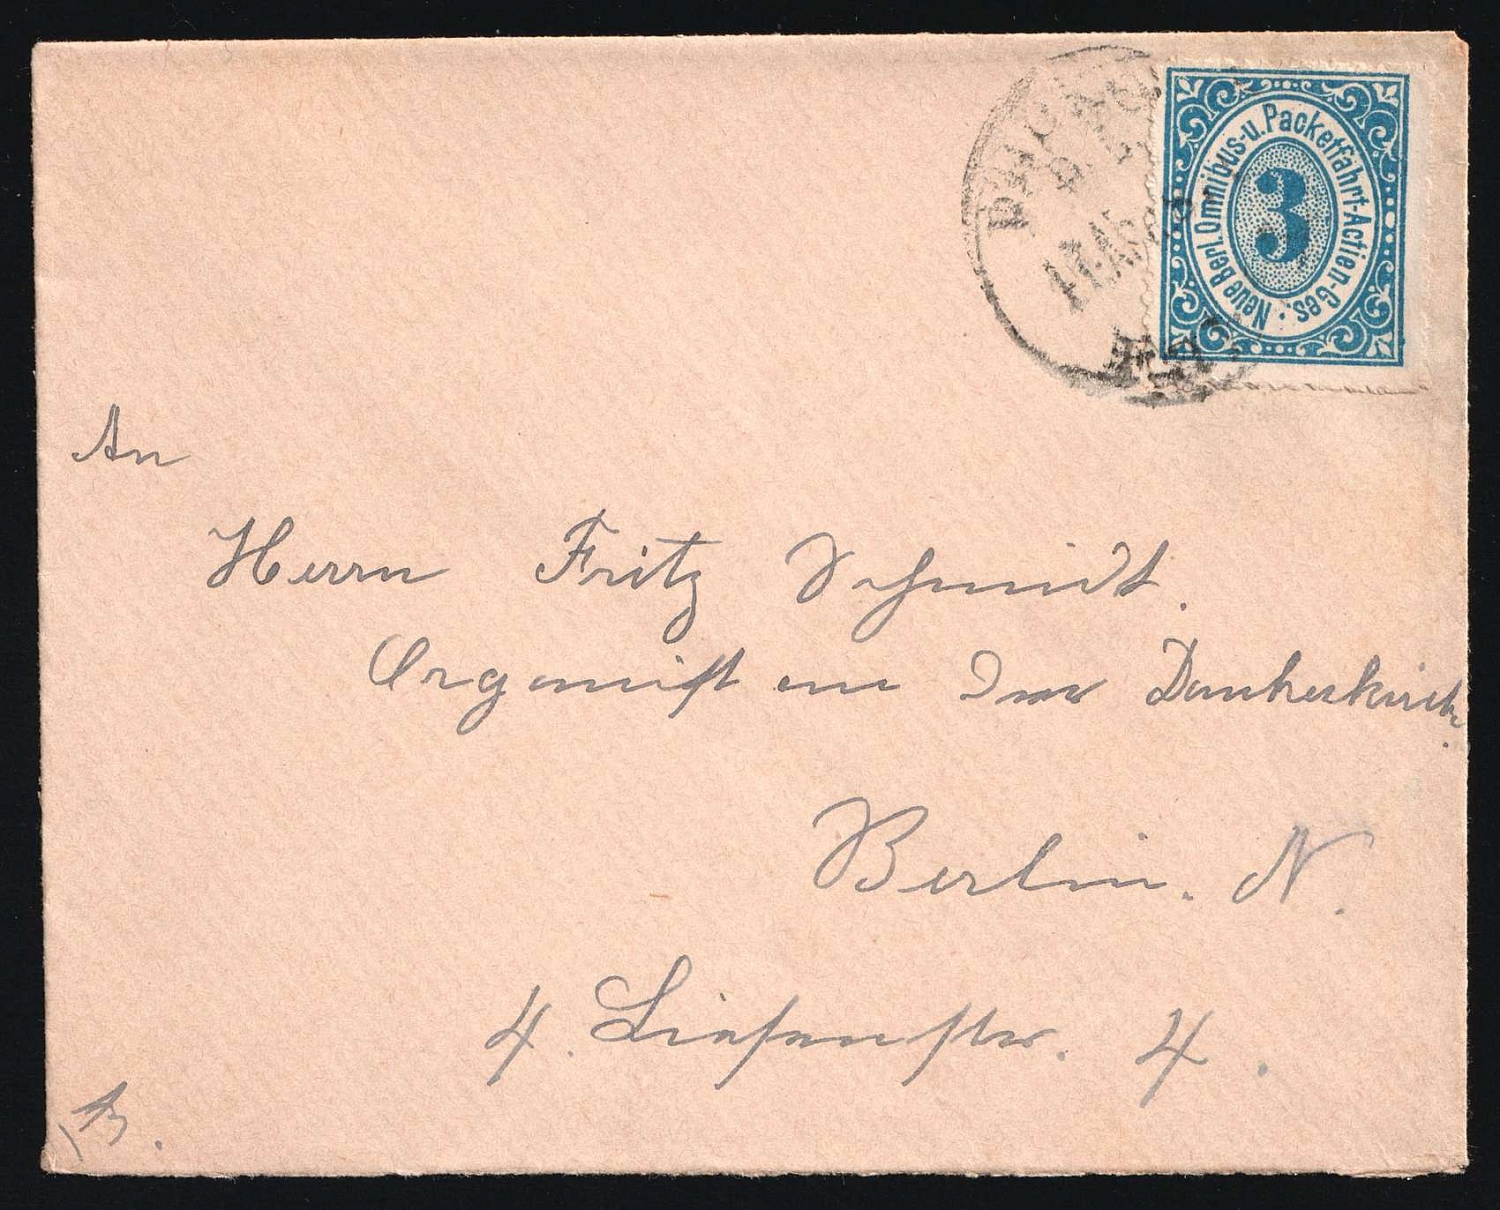 Neue Berl. Omnibus-u. Packetfahrt-Actien-Ges.
3
An
Herrn Fritz Schmidt.
Organist an der Dankeskirche.
Berlin. N.
4. Liesenstr. 4.